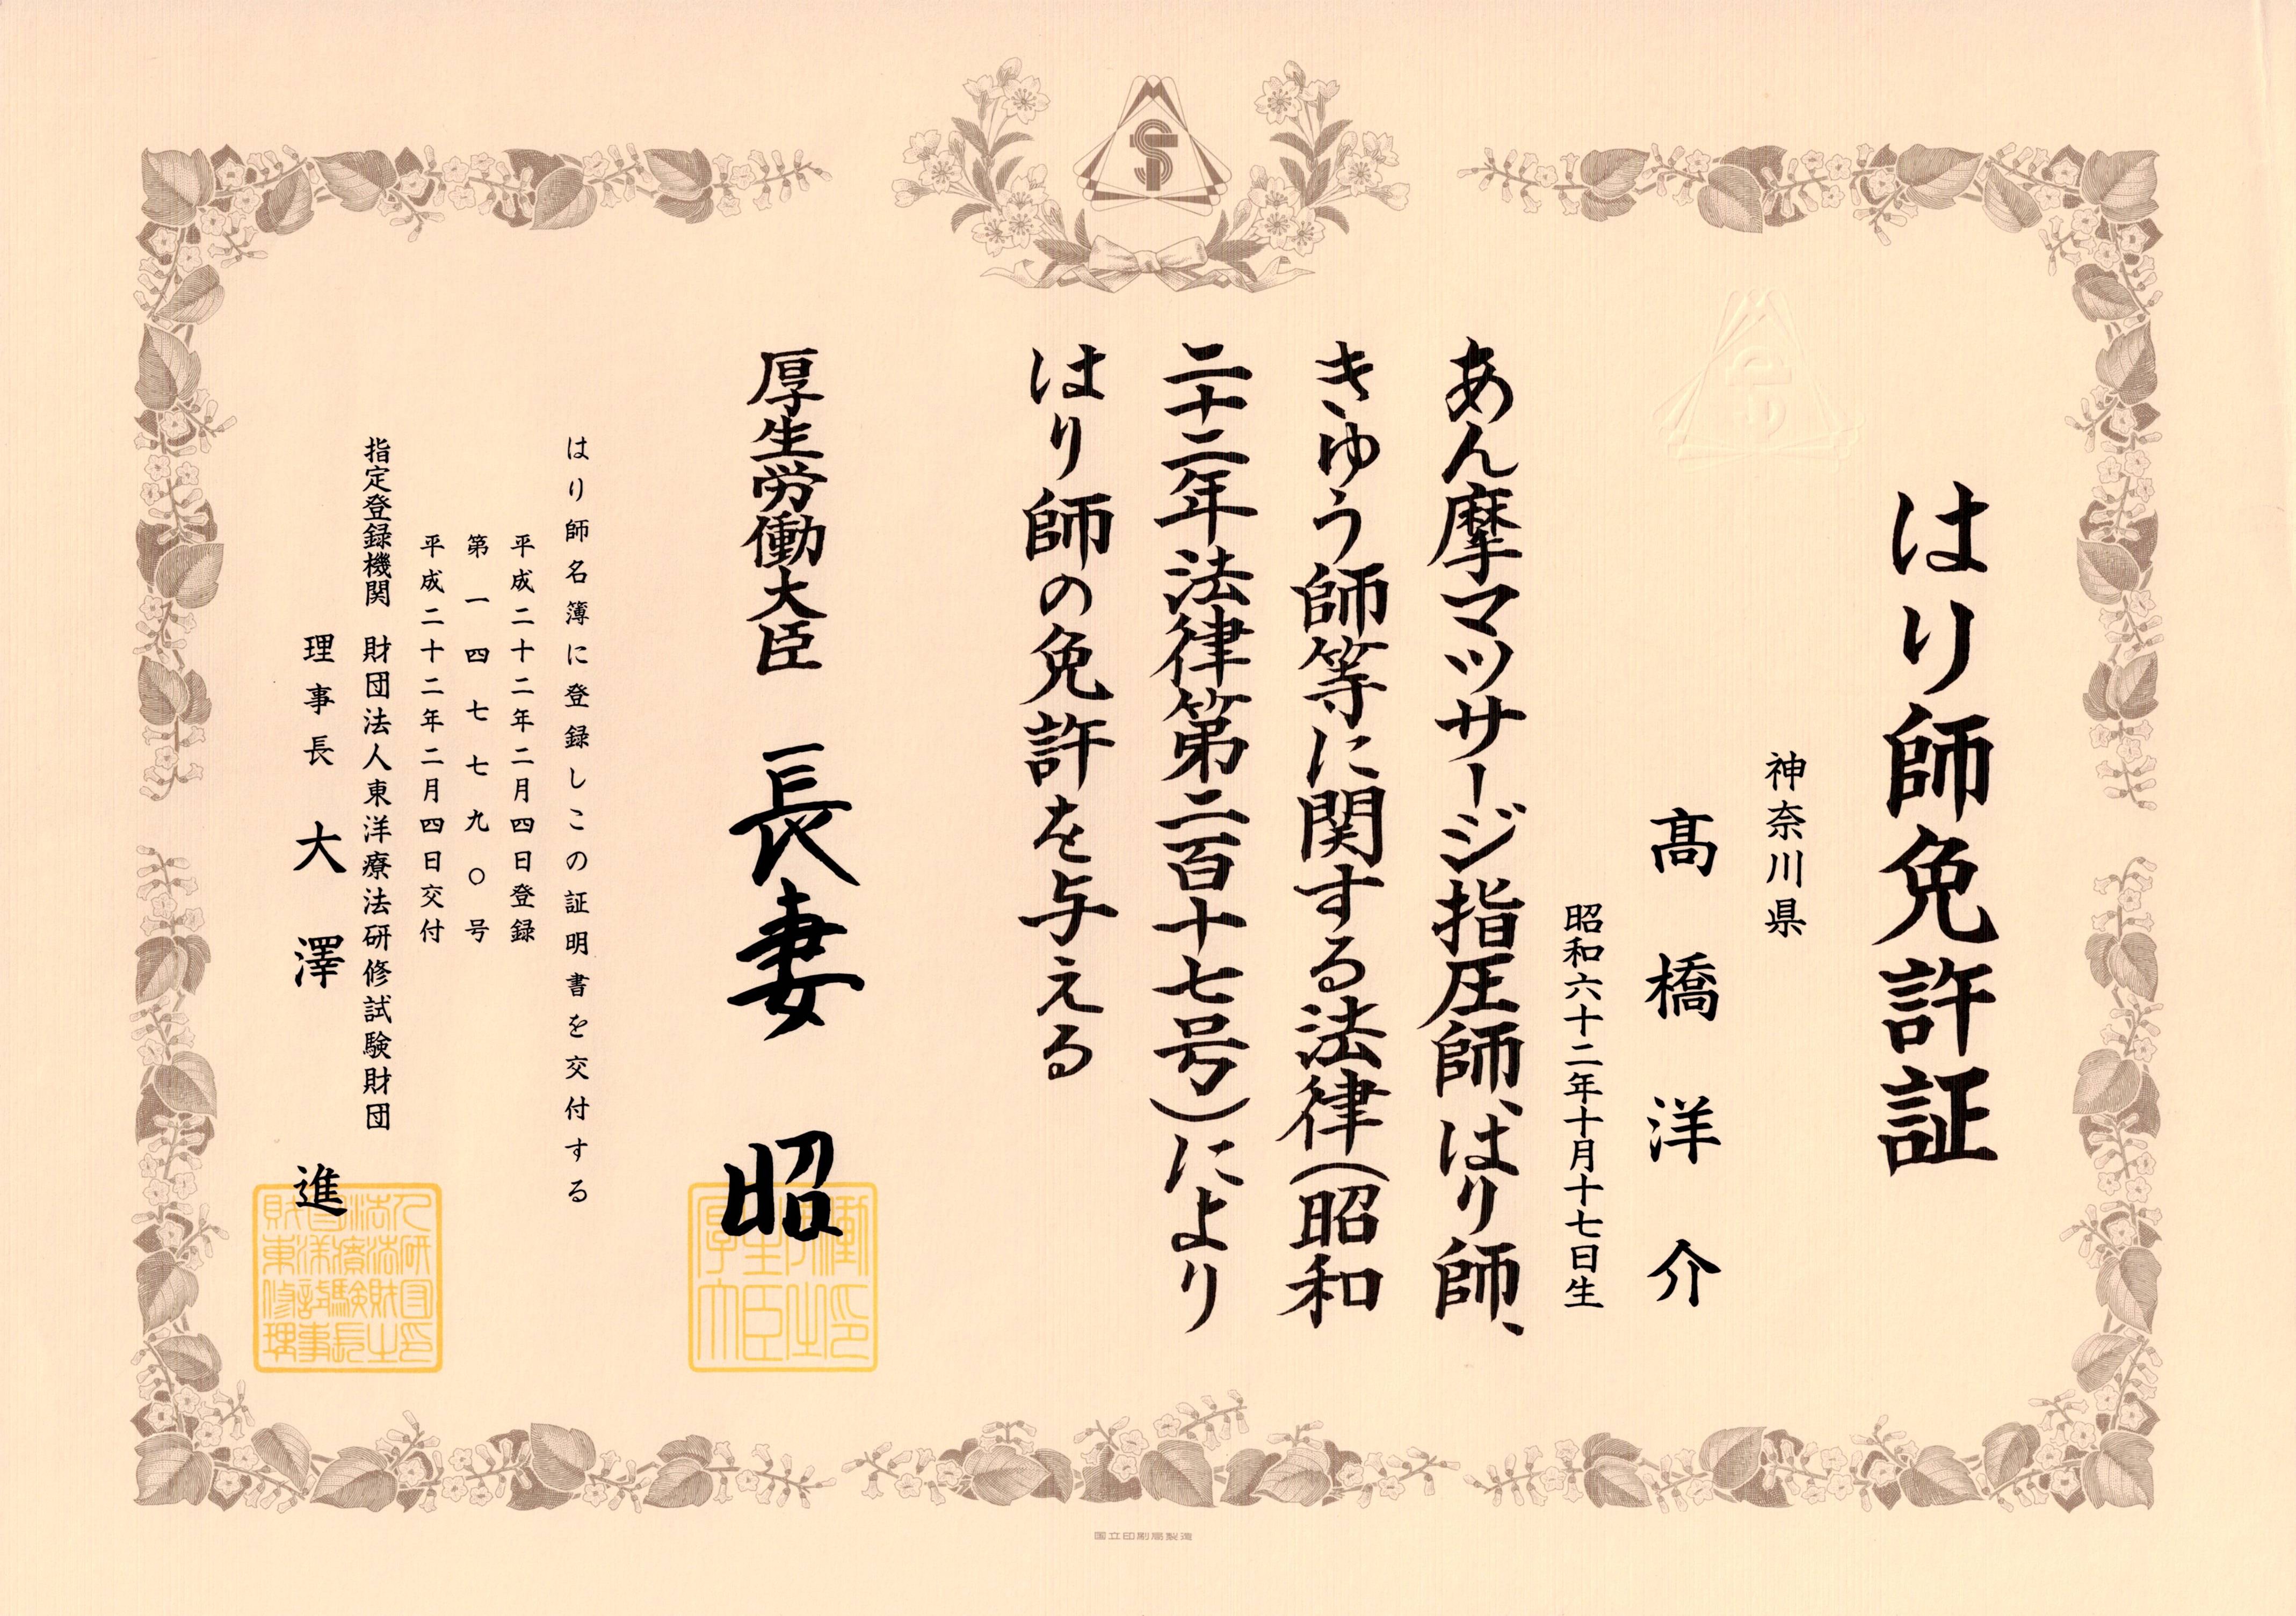 はり師免許証
神奈川県
髙橋洋介
昭和六十二年十月十七日生
あん摩マツサージ指圧師、はり師、
きゆう師等に関する法律(昭和
二十二年法律第二百十七号)により
はり師の免許を与える
厚生労働大臣 長妻 昭
はり師名簿に登録しこの証明書を交付する
平成二十二年二月四日登録
第一四七七九〇号
平成二十二年二月四日交付
指定登録機関 財団法人東洋療法研修試験財団
理事長 大澤 進
国立印刷局製造